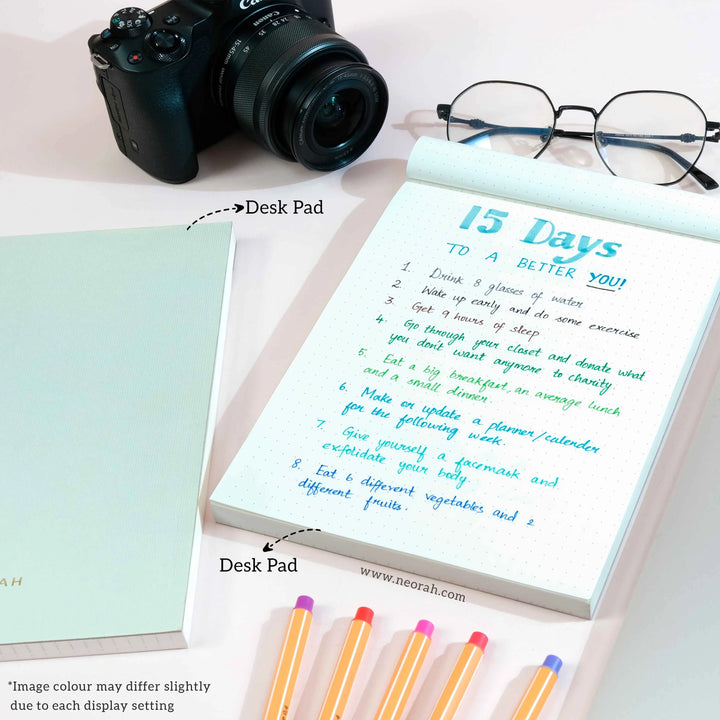 Canon
Desk Pad
15 Days
TO A BETTER YOU!
1. Drink 8 glasses of water
2. Wake up early and do some excercise
3. Get 9 hours of sleep
4. Go through your closet and donate what
you don't want anymore to charity
5. Eat a big breakfast, an average lunch
and a small dinner.
6. Make or update a planner/calender
for the following week.
7. Give yourself a facemask and
exfolidate your body.
8. Eat 6 different vegetables and 2
different fruits.
Desk Pad
www.neorah.com
RAH
*Image colour may differ slightly
due to each display setting